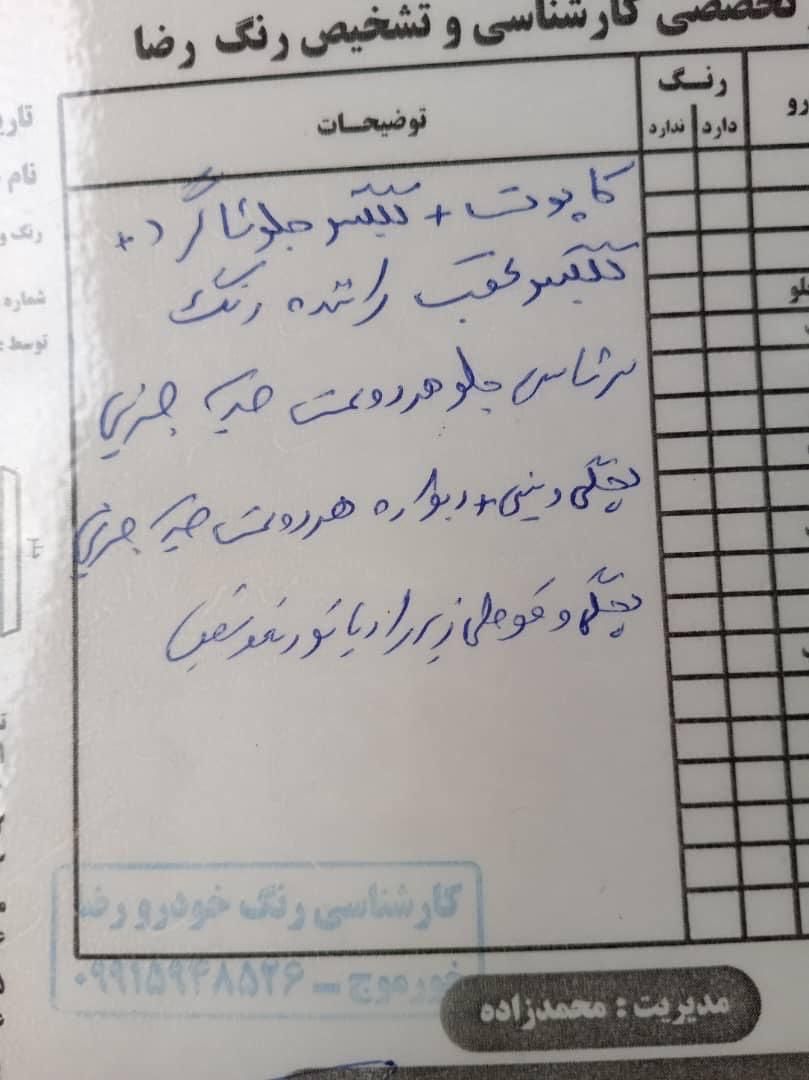 تخصصی کارشناسی و تشخیص رنگ رضا
توضیحات
رنگ
دارد
ندارد
رو
کاپوت + گلگیر جلو شاگرد +
گلگیر عقب راننده رنگ
سرشاسی جلو هر دو سمت ضربه جزیی
سینی + دیواره هر دو سمت ضربه جزیی
و قوطی زیر رادیاتور تعویض
نام
رنگ و
شماره
توسط :
لو
کارشناسی رنگ خودرو رضا
خورموج - ۰۹۹۱۵۹۴۸۵۲۶
مدیریت : محمدزاده